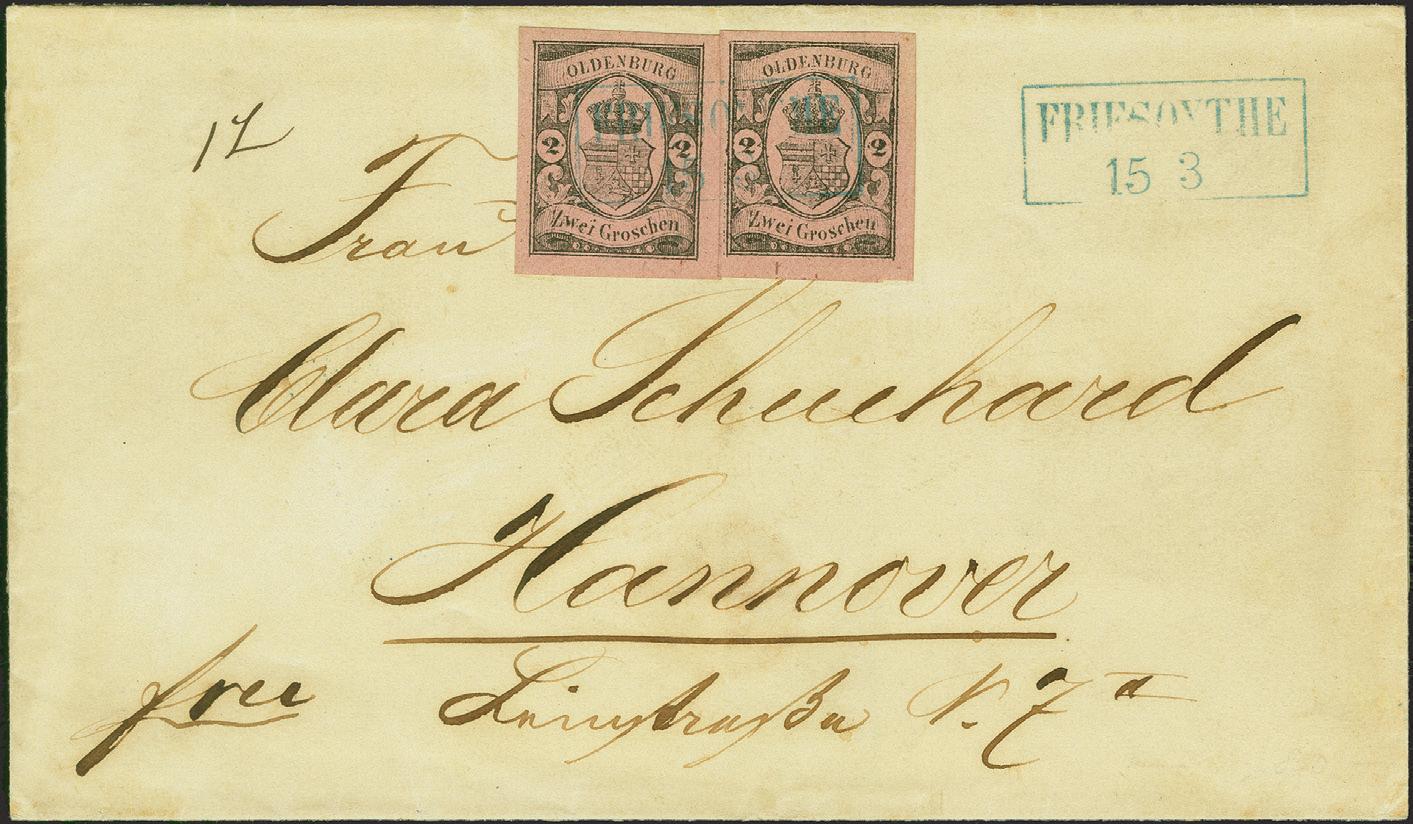 OLDENBURG OLDENBURG
2 2 2 2
Zwei Groschen Zwei Groschen
FRIESOYTHE
15 3
Frau
Clara Schuchard
Hannover
Leinstraße N. 7a